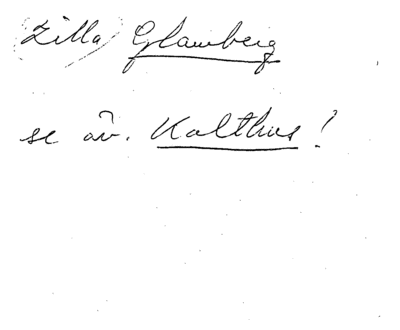 (Zilla) Glamberg
se äv. Kalthus!